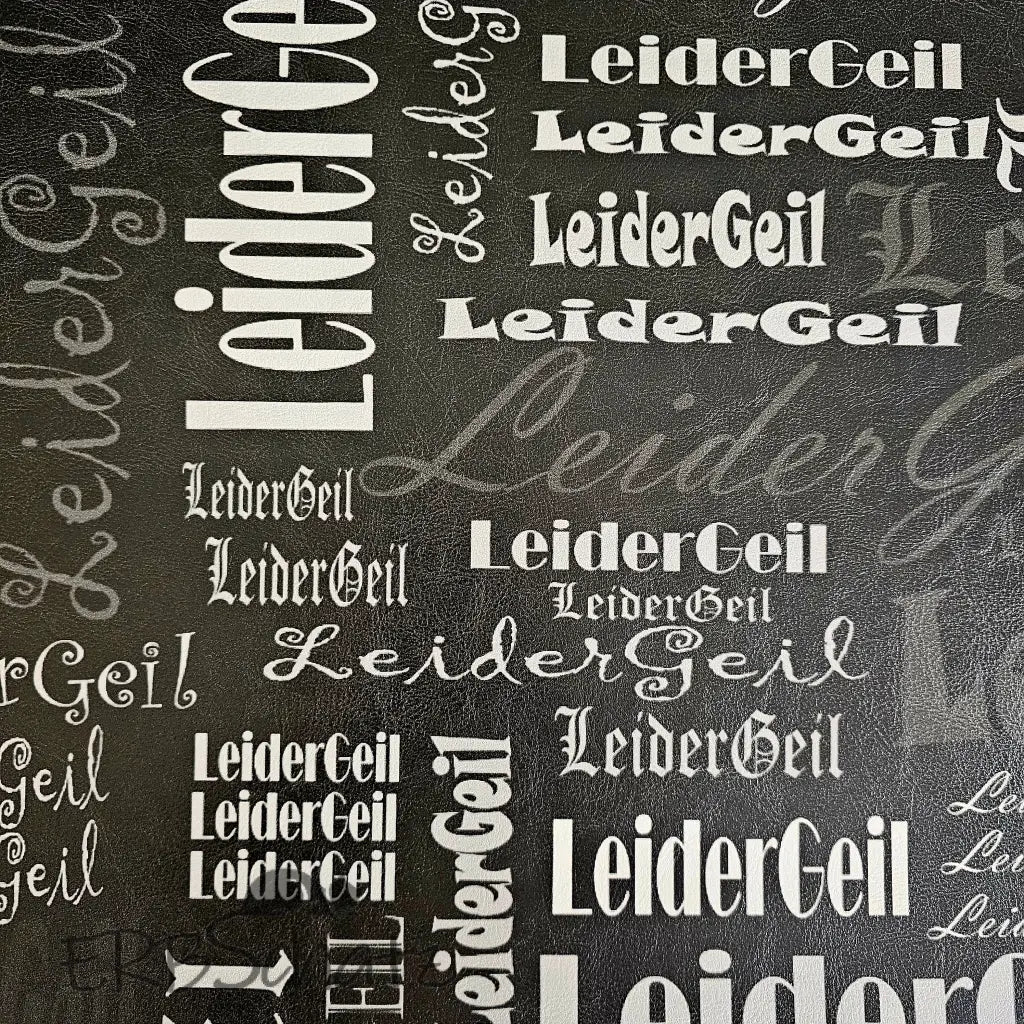 LeiderGeil
LeiderGe
LeiderG
LeiderGeil
LeiderGeil
LeiderGeil
Le
LeiderGeil
LeiderG
LeiderGeil
LeiderGeil
LeiderGeil
LeiderGeil
LeiderGeil
rGeil
LeiderGeil
Le
Geil
Geil
LeiderGeil
LeiderGeil
LeiderGeil
LeiderGeil
LeiderGeil
Lei
Lei
Leid
LeiderG